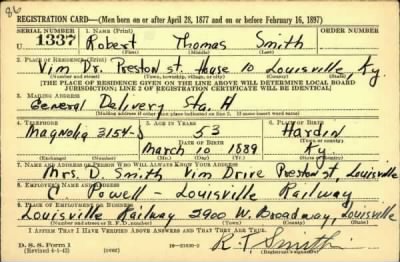 86
REGISTRATION CARD—(Men born on or after April 28, 1877 and on or before February 16, 1897)
SERIAL NUMBER 1. NAME (Print) ORDER NUMBER
U 1337 Robert Thomas Smith
(First) (Middle) (Last)
2. PLACE OF RESIDENCE (Print)
Vim Dr. Preston st. House 10 Louisville Ky.
(Number and street) (Town, township, village, or city) (County) (State)
[THE PLACE OF RESIDENCE GIVEN ON THE LINE ABOVE WILL DETERMINE LOCAL BOARD
JURISDICTION; LINE 2 OF REGISTRATION CERTIFICATE WILL BE IDENTICAL]
3. MAILING ADDRESS
General Delivery Sta. H
(Mailing address if other than place indicated on line 2. If same insert word same)
4. TELEPHONE 5. AGE IN YEARS 6. PLACE OF BIRTH
Magnolia 3154-J 53 Hardin
DATE OF BIRTH (Town or county)
March 10 1889 Ky.
(Exchange) (Number) (Mo.) (Day) (Yr.) (State or country)
7. NAME AND ADDRESS OF PERSON WHO WILL ALWAYS KNOW YOUR ADDRESS
Mrs. D. Smith Vim Drive Preston st, Louisville
8. EMPLOYER'S NAME AND ADDRESS
C. Powell - Louisville Railway
9. PLACE OF EMPLOYMENT OR BUSINESS
Louisville Railway 2900 W. Broadway, Louisville
(Number and street or R. F. D. number) (Town) (County) (State)
I AFFIRM THAT I HAVE VERIFIED ABOVE ANSWERS AND THAT THEY ARE TRUE.
D. S. S. Form 1
(Revised 4-1-42) (over)
R. T. Smith